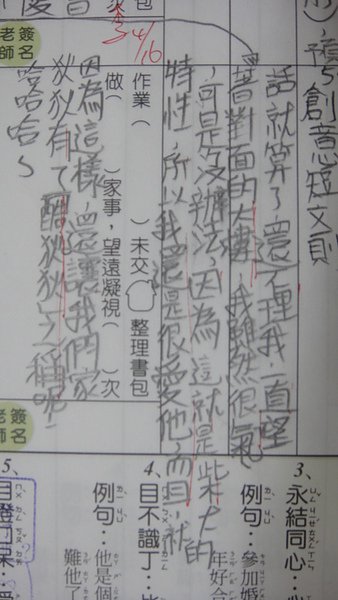 創意短文則
話就算了,還不理我,一直望
著對面的大樓,我雖然很氣
,可是沒辦法,因為這就是柴犬的
特性,所以我還是很愛他,而且,就
作業( )未交 整理書包
做( )家事,望遠凝視( )次
因為這樣,還讓我們家
狄狄有了酷狄狄之稱呢!
哈哈哈~
4/16
次 包
簽名
老師
簽名
老
3、永結同心…心
例句…參加婚
年好合
4、目不識丁…
例句…他是個
難他了
5、目瞪口呆…